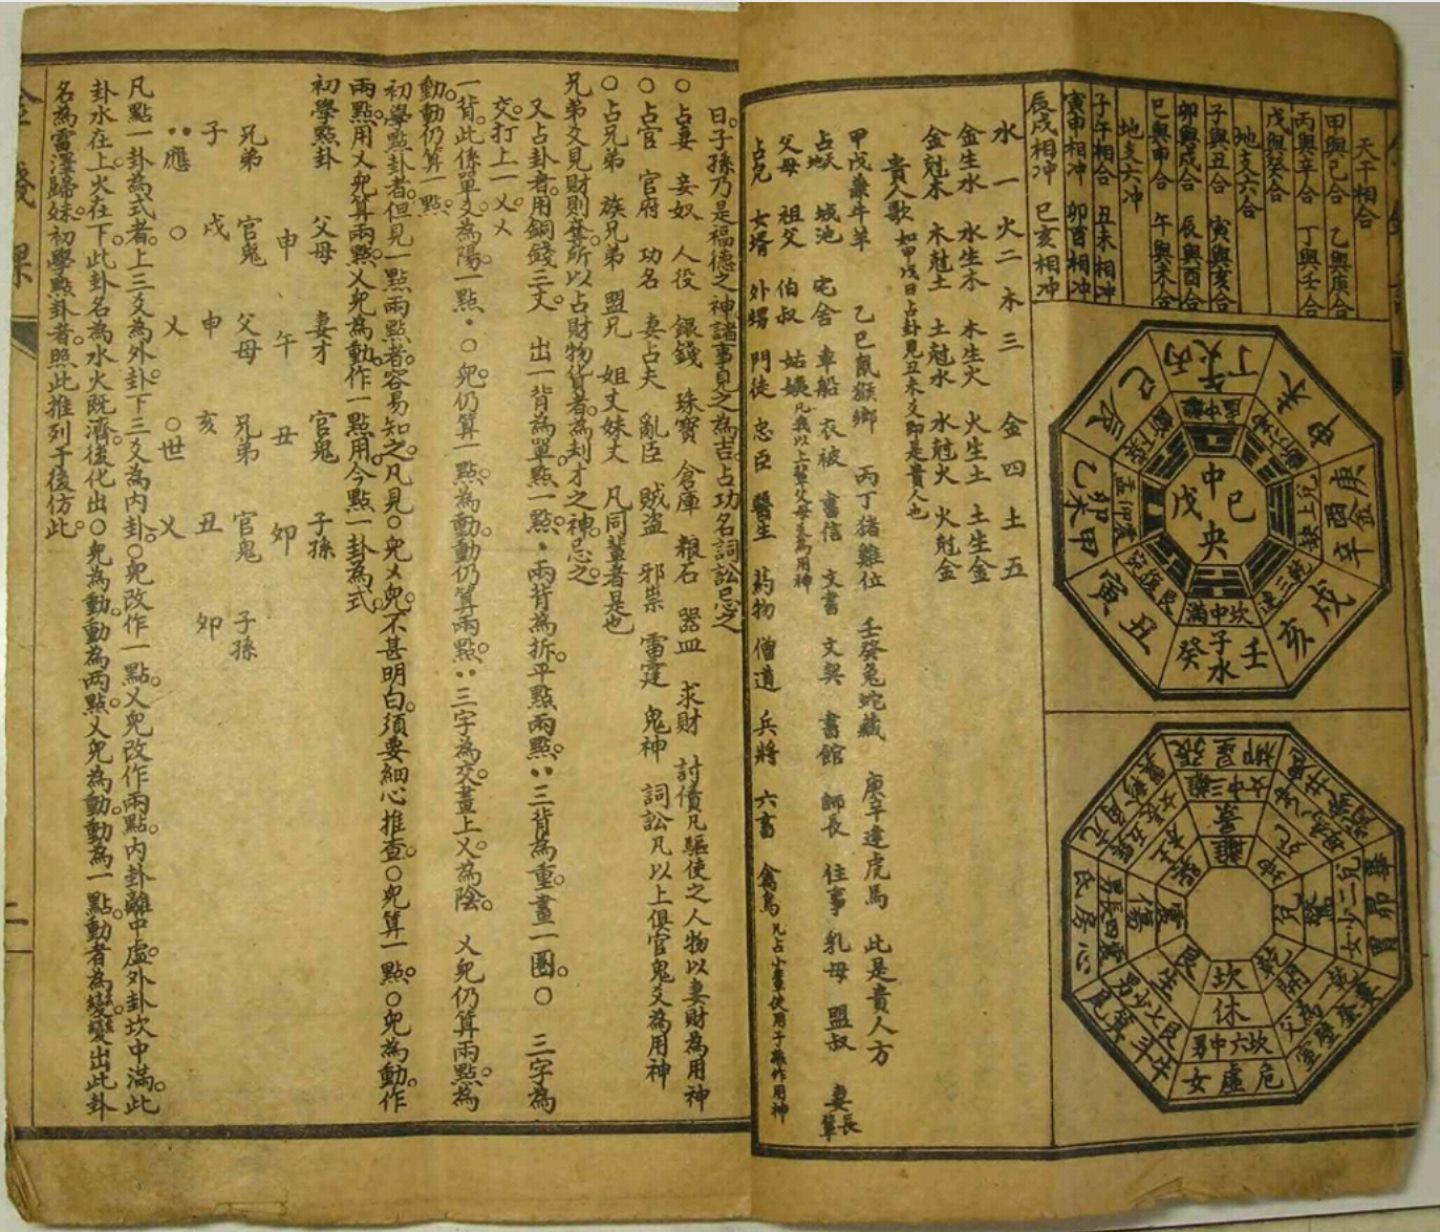 天干相合
甲與己合 乙與庚合
丙與辛合 丁與壬合
戊與癸合
地支六合
子與丑合 寅與亥合
卯與戌合 辰與酉合
巳與申合 午與未合
地支六冲
子午相冲 丑未相冲
寅申相冲 卯酉相冲
辰戌相冲 巳亥相冲
中央
戊己
丁火丙
午
離中虛
未
申
兌上缺
庚酉金辛
乾三連
戌
亥
坎中滿
壬子水癸
艮覆碗
丑
寅
甲卯乙
辰
巳
柳星張
離
坎
休
坎六中男
女虛危
乾
開
兌
兌二少女
胃昴畢
艮
生
震
傷
氐房心
水一 火二 木三 金四 土五
金生水 水生木 木生火 火生土 土生金
金尅木 木尅土 土尅水 水尅火 火尅金
貴人歌 如甲戊日占卦見丑未爻即是貴人也
甲戊兼牛羊 乙巳鼠猴鄉 丙丁猪雞位 壬癸兔蛇藏 庚辛逢虎馬 此是貴人方
占 城池 宅舍 車船 衣被 書信 文書 文契 書館 師長 住事 乳母 盟叔 妻長輩
父母 祖父 伯叔 姑姨 凡我以上輩父母爻為用神
占兒 女壻 外甥 門徒 忠臣 醫生 葯物 僧道 兵將 六畜 禽鳥 凡占小輩使用子孫作用神
日。子孫乃是福德之神諸事見之為吉。占功名詞訟忌之
○占妻 妾奴 人役 銀錢 珠寶 倉庫 粮石 器皿 求財 討債凡驅使之人物以妻財為用神
○占官 官府 功名 妻占夫 亂臣 賊盗 邪祟 雷霆 鬼神 詞訟凡以上俱官鬼爻為用神
○占兄弟 族兄弟 盟兄 姐丈妹丈 凡同輩者是也
兄弟爻見財則奪。所以占財物貨者。為刦才之神。忌之
又占卦者。用銅錢三文 出一背為單點一點、兩背為拆。平點兩點。‥三背為重。畫一圈。○ 三字為
交。打上一乂乂
一背。此係單爻。為陽。一點・○兒仍算一點。為動。動仍算兩點。‥三字為交。畫上乂。為陰。 乂兒仍算兩點。為
動。動仍算一點。
初學點卦者。但見一點兩點者。容易知之。凡見○兒乂兒。不甚明白。須要細心推查。○兒算一點。○兒為動。作
兩點。用乂兒算兩點。乂兒為動。作一點用。今點一卦為式。
初學點卦 父母 妻才 官鬼 子孫
申 午 丑 卯
兄弟 官鬼 父母 兄弟 官鬼 子孫
子 戌 申 亥 丑 卯
‥應 ○ 乂 ○世 乂
凡點一卦為式者。上三爻為外卦。下三爻為內卦。○兒改作一點。乂兒改作兩點。內卦離中虛。外卦坎中滿。此
卦水在上。火在下。此卦名為水火既濟。後化出○兒為動。動為兩點。乂兒為動。動為一點。動者為變。變出此卦
名為雷澤歸妹。初學點卦者。照此推列于後仿此。
二